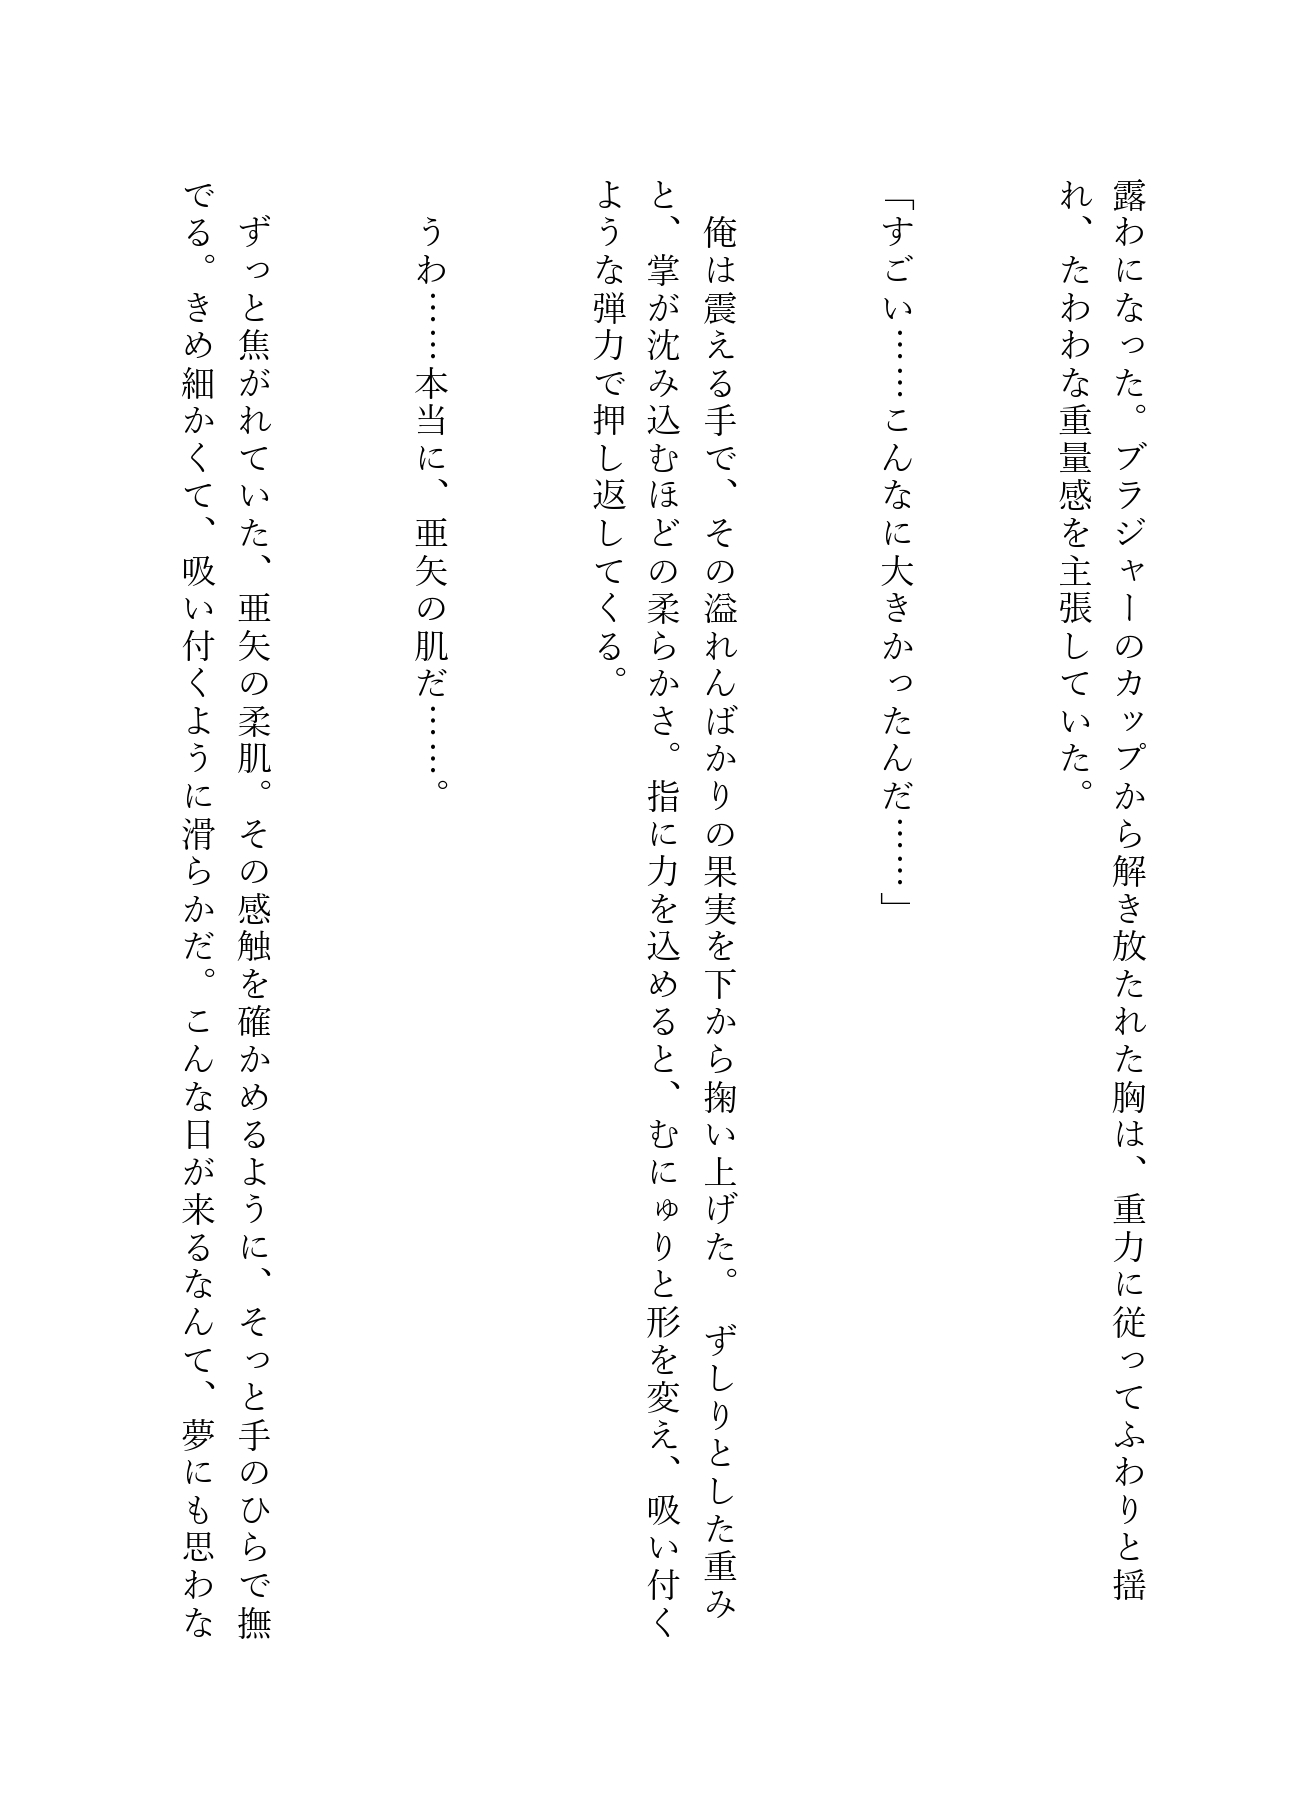 露わになった。ブラジャーのカップから解き放たれた胸は、重力に従ってふわりと揺
れ、たわわな重量感を主張していた。
「すごい……こんなに大きかったんだ……」
俺は震える手で、その溢れんばかりの果実を下から掬い上げた。　ずしりとした重み
と、掌が沈み込むほどの柔らかさ。指に力を込めると、むにゅりと形を変え、吸い付く
ような弾力で押し返してくる。
うわ……本当に、亜矢の肌だ……。
ずっと焦がれていた、亜矢の柔肌。その感触を確かめるように、そっと手のひらで撫
でる。きめ細かくて、吸い付くように滑らかだ。こんな日が来るなんて、夢にも思わな